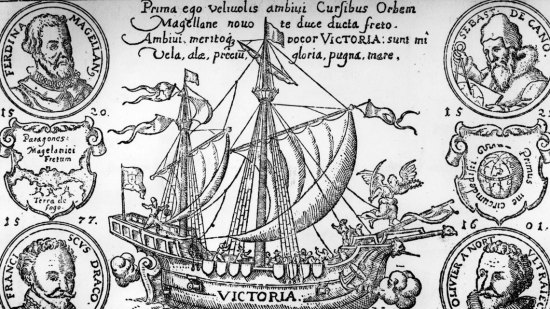 Prima ego velivolis ambivi Cursibus Orbem
Magellane novo te duce ducta freto.
Ambivi, meritoq vocor VICTORIA: sunt mî
Vela, alæ, preciũ, gloria, pugna, mare.
FERDINA MAGELLANS
SEBAST DE CANO
1520
1521
Paragones:
Magelanici
Fretum
Terra de
fogo.
Primus me circumdedisti
1577
1601
FRANCISCVS DRACO
OLIVIER A NORT VLTRATEC
VICTORIA